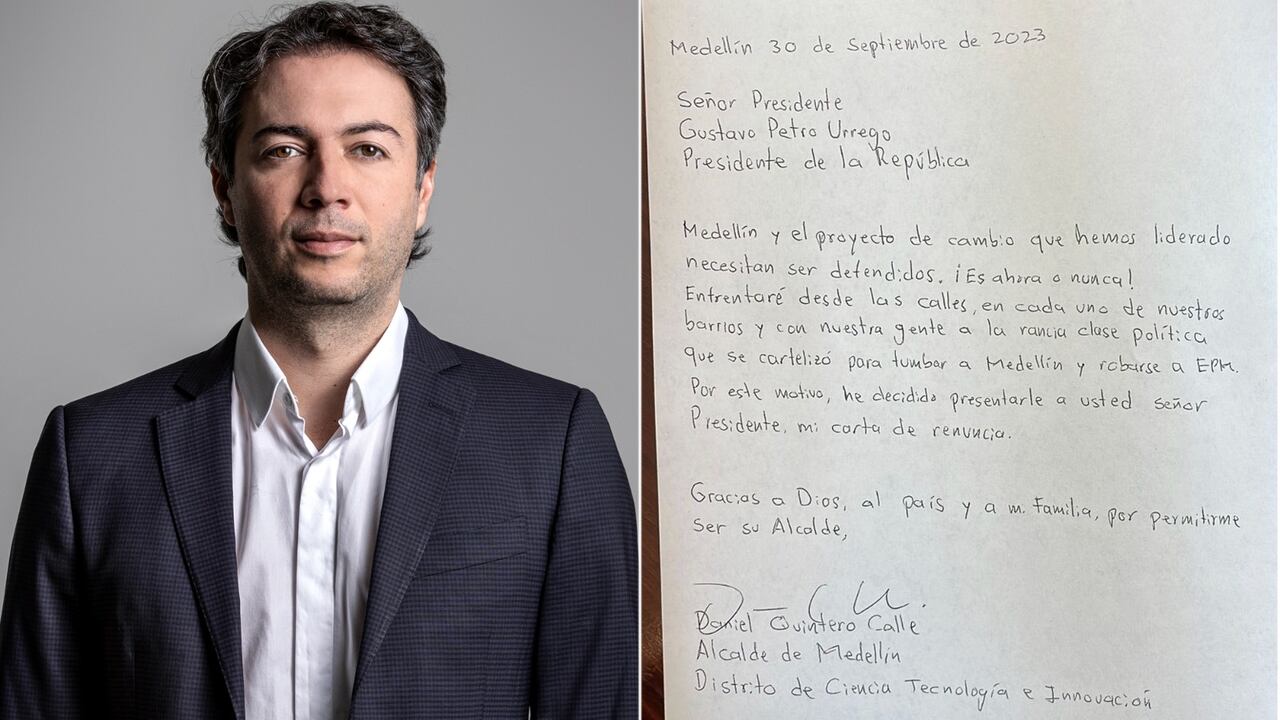 Medellín 30 de Septiembre de 2023
Señor Presidente
Gustavo Petro Urrego
Presidente de la República
Medellín y el proyecto de cambio que hemos liderado
necesitan ser defendidos. ¡Es ahora o nunca!
Enfrentaré desde las calles, en cada uno de nuestros
barrios y con nuestra gente a la rancia clase política
que se cartelizó para tumbar a Medellín y robarse a EPM.
Por este motivo, he decidido presentarle a usted Señor
Presidente, mi carta de renuncia.
Gracias a Dios, al país y a mi familia, por permitirme
Ser su Alcalde,
Daniel Quintero Calle
Alcalde de Medellín
Distrito de Ciencia Tecnología e Innovación